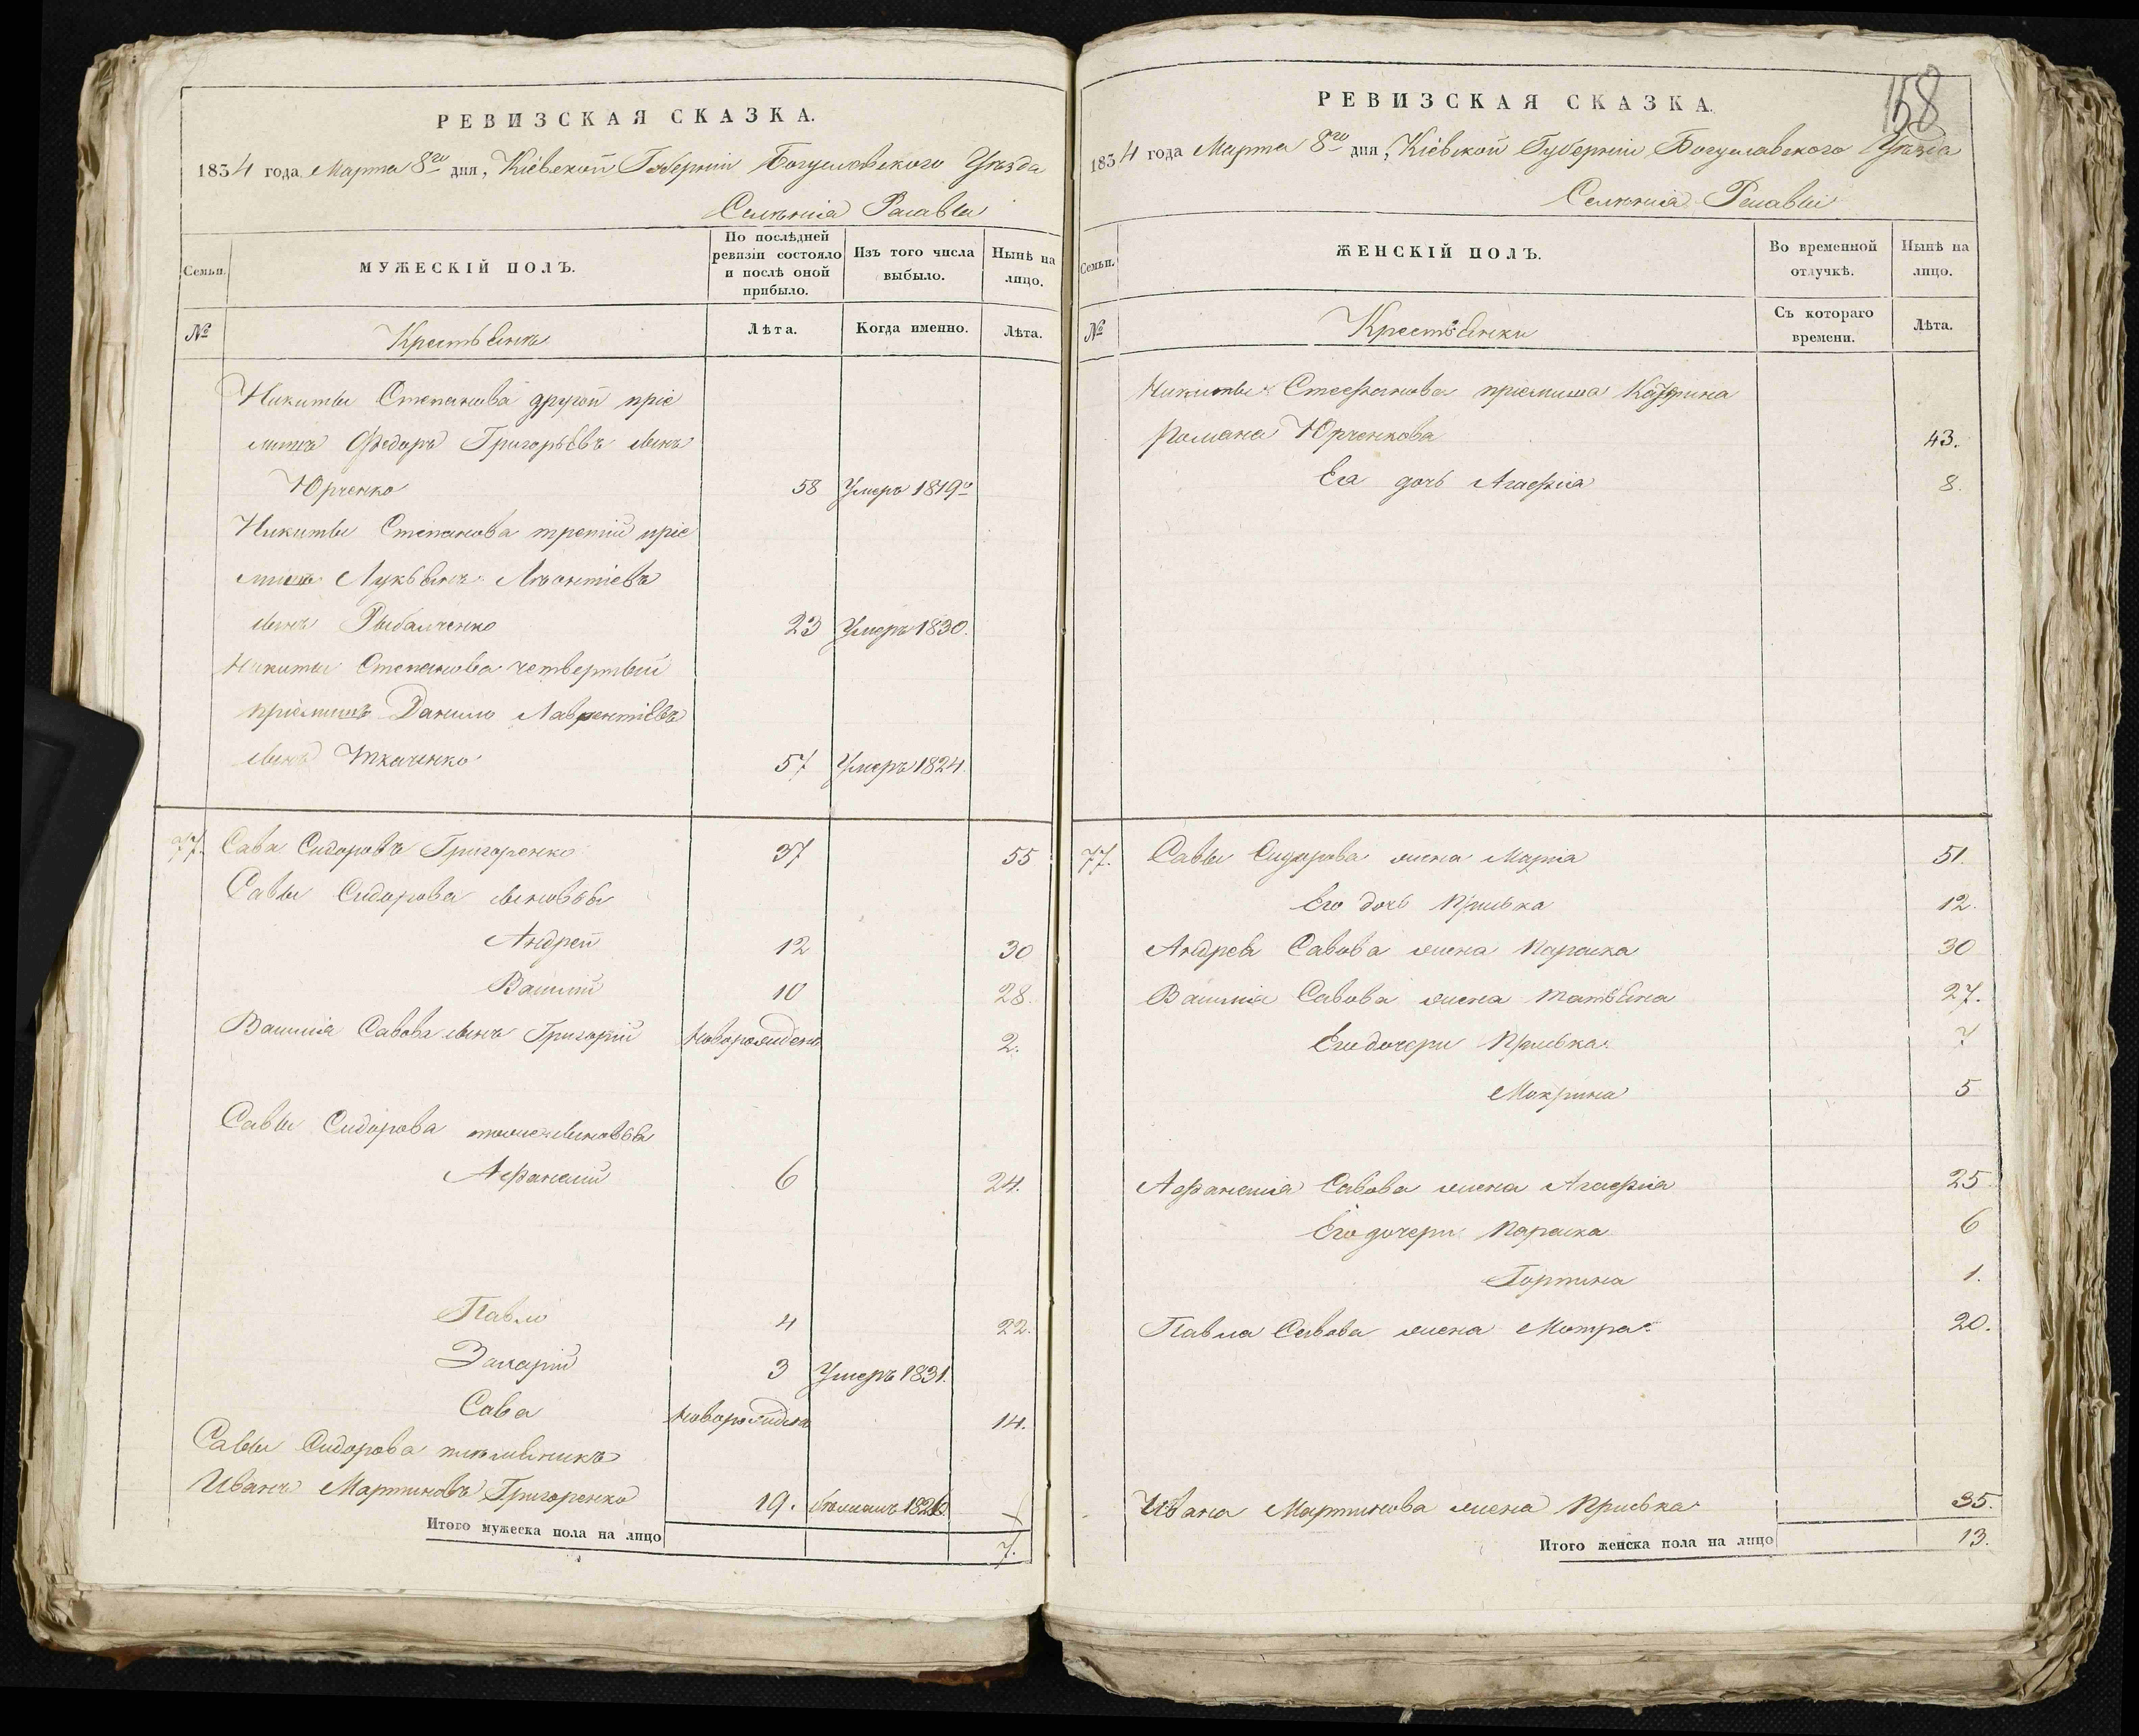 РЕВИЗСКАЯ СКАЗКА.
1834 года Марта 8го дня, Кіевской Губерніи Богуславского Уѣзда
Селѣнія Расавы
Семьи.
МУЖЕСКІЙ ПОЛЪ.
По послѣдней ревизіи состояло и послѣ оной прибыло.
Изъ того числа выбыло.
Нынѣ на лицо.
№
Крестьянъ
Лѣта.
Когда именно.
Лѣта.
Никиты Степанова другой пріе
мишъ Федоръ Григорьевъ сынъ
Юрченко 58 Умеръ 1819го
Никиты Степанова третій пріе
мишъ Лукьянъ Леонтіевъ
сынъ Рыбалченко 23 Умеръ 1830.
Никиты Степанова четвертый
пріемишъ Данило Лаврентіевъ
сынъ Ткаченко 57 Умеръ 1824.
77. Сава Сидоровъ Григоренко 37 55
Савы Сидорова сыновья
Андрей 12 30
Василій 10 28.
Василія Савова сынъ Григорій новорожденъ 2.
Савы Сидорова тоже сыновья
Афанасій 6 24.
Павло 4 22.
Захарій 3 Умеръ 1831.
Сава новорожденъ 14.
Савы Сидорова племянникъ
Иванъ Мартиновъ Григоренко 19. 1826.
Итого мужеска пола на лицо 7.
158
РЕВИЗСКАЯ СКАЗКА.
1834 года Марта 8го дня, Кіевской Губерніи Богуславского Уѣзда
Селѣнія Расавы
Семьи.
ЖЕНСКІЙ ПОЛЪ.
Во временной отлучкѣ.
Нынѣ на лицо.
№
Крестьянки
Съ котораго времени.
Лѣта.
Никиты Стефанова пріемиша
Романа Юрченкова 43.
Ея дочь Агафія 8.
77. Савы Сидорова жена Марія 51.
Его дочь Приська 12.
Андрея Савова жена Параска 30
Василія Савова жена Татьяна 27.
Его дочери Приська 7
Мокрина 5
Афанасія Савова жена Агафія 25.
Его дочери Параска 6
Горпина 1.
Павла Савова жена Мотра 20.
Ивана Мартинова жена Приська 35.
Итого женска пола на лицо 13.